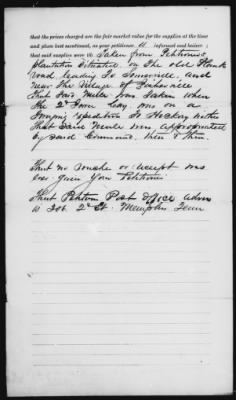 that the prices charged are the fair market value for the supplies at the time
and place last mentioned, as your petitioner is informed and believes:
that said supplies were Taken from Petitioners
plantation Situated on The old Plank
road leading To Somerville, and
near The Village of Fisherville
that Said Mules was Taken when
The 2d Iowa Cavy was on a
foraging expedition To
that Said Mules was appropriated
by Said Command, then & There.
That no voucher or receipt was
ever given your Petitioner
That Petitions Post Office adress
is 306 2d St. Memphis Tenn